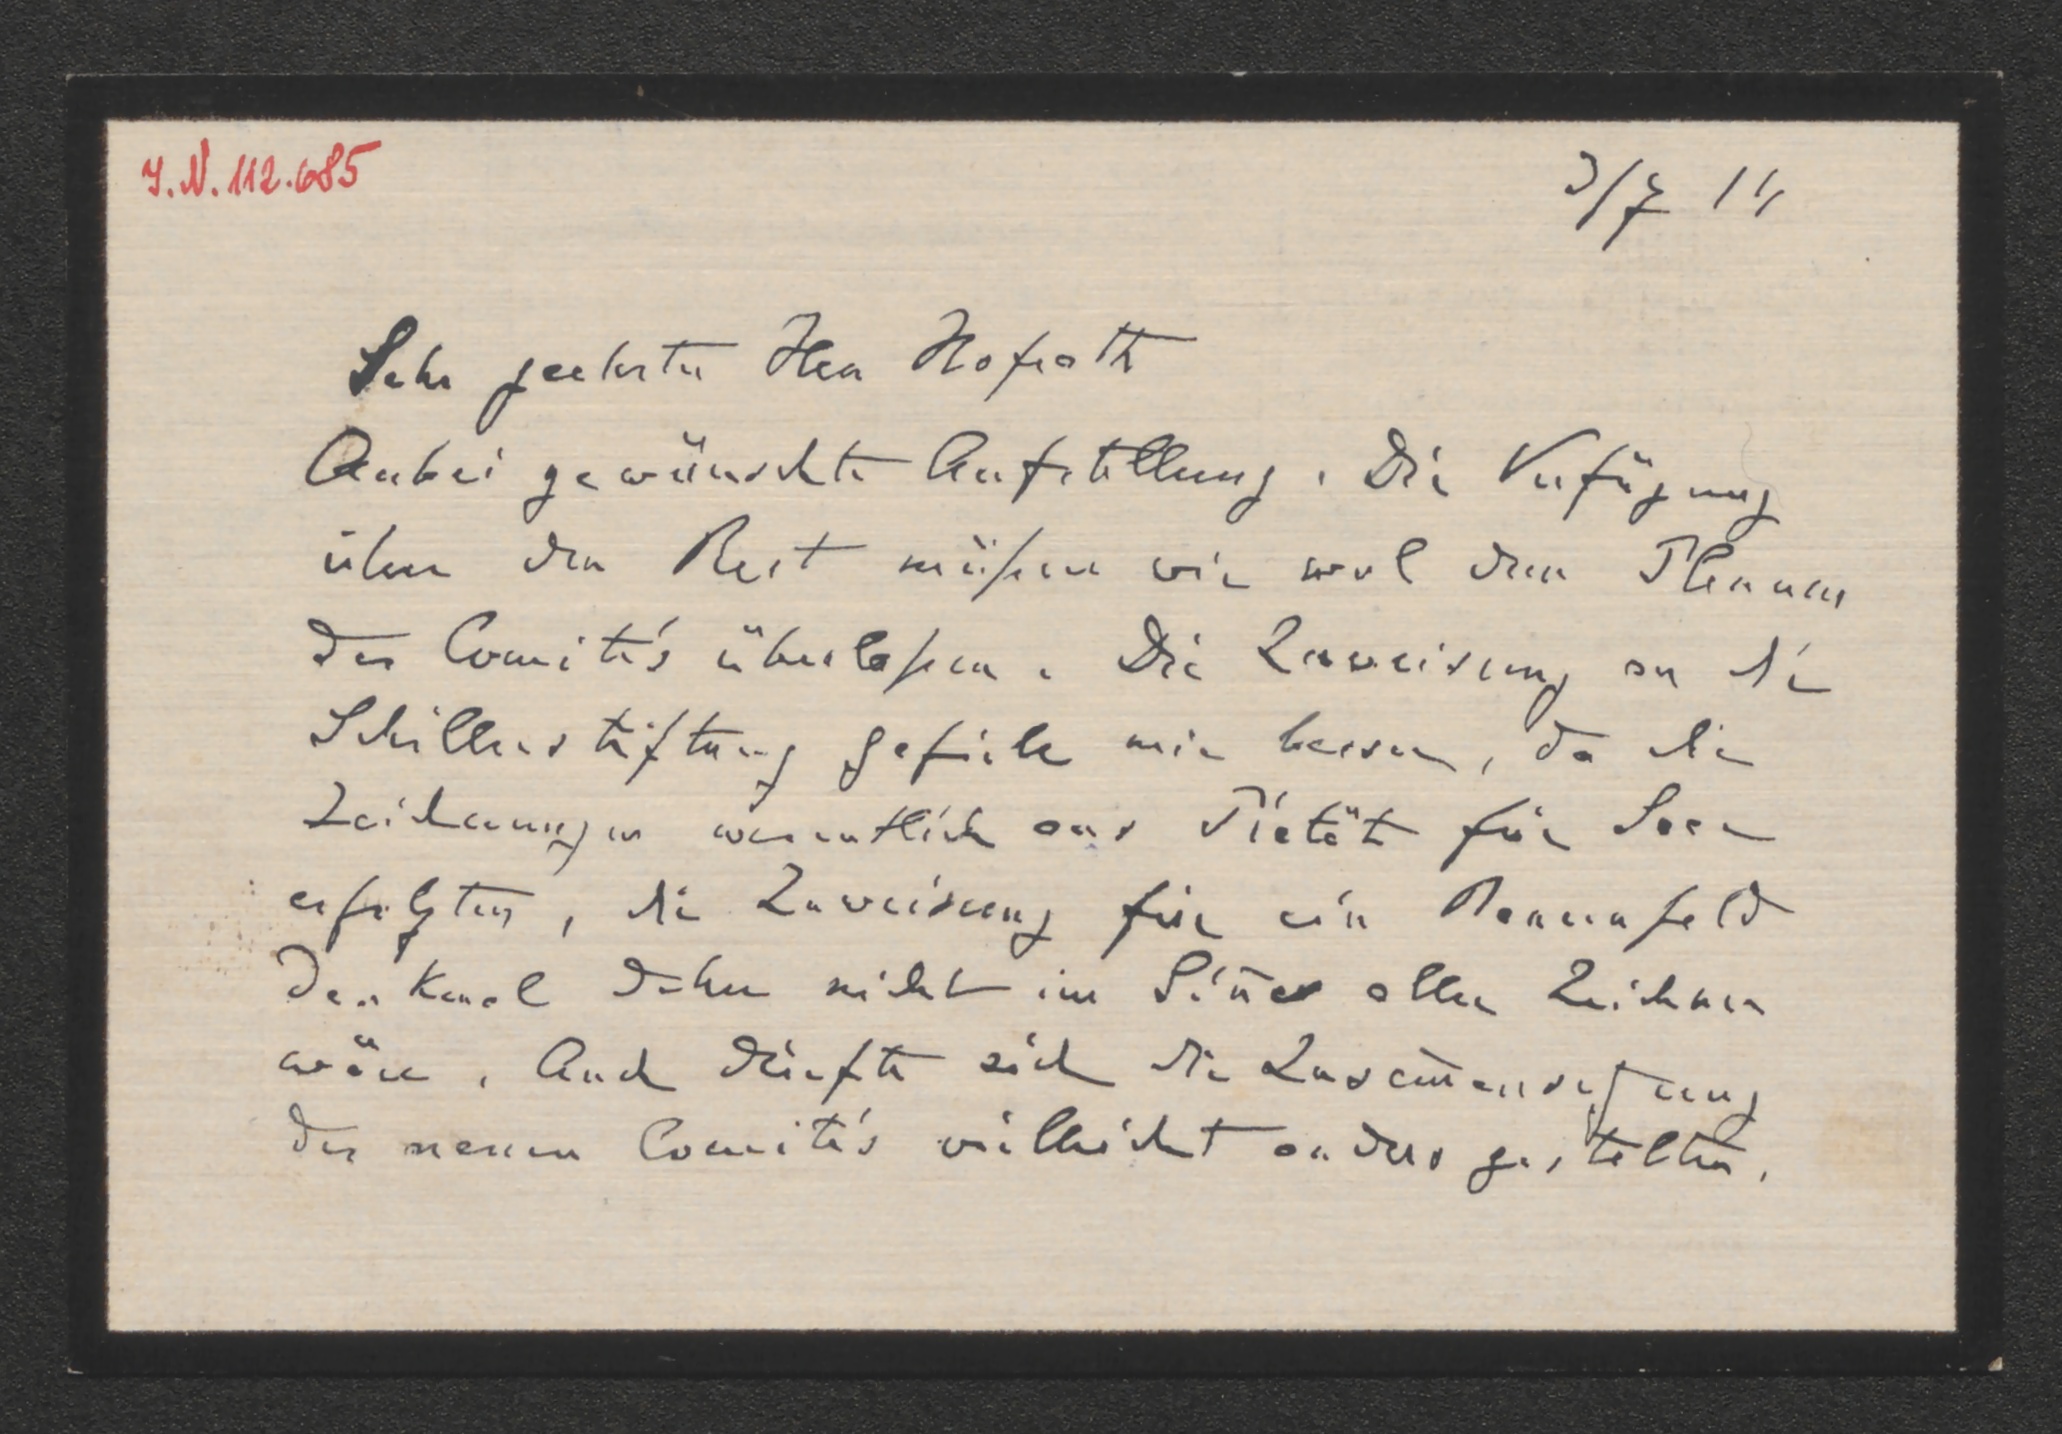 J.N. 112.685
3/7 14
Sehr geehrter Herr Hofrath
Anbei gewünschte Aufstellung. Die Verfügung
über den Rest müßen wir wol dem Plenum
des Comités überlaßen. Die Zuweisung an die
Schillerstiftung gefiele mir besser, da die
Zeichnungen wesentlich aus Pietät für
erfolgten, die Zuweisung für ein
Denkmal daher nicht im Sin̄e aller Zeichner
wäre. Auch dürfte sich die Zusam̄ensetzung
des neuen Comités vielleicht anders gestalten.